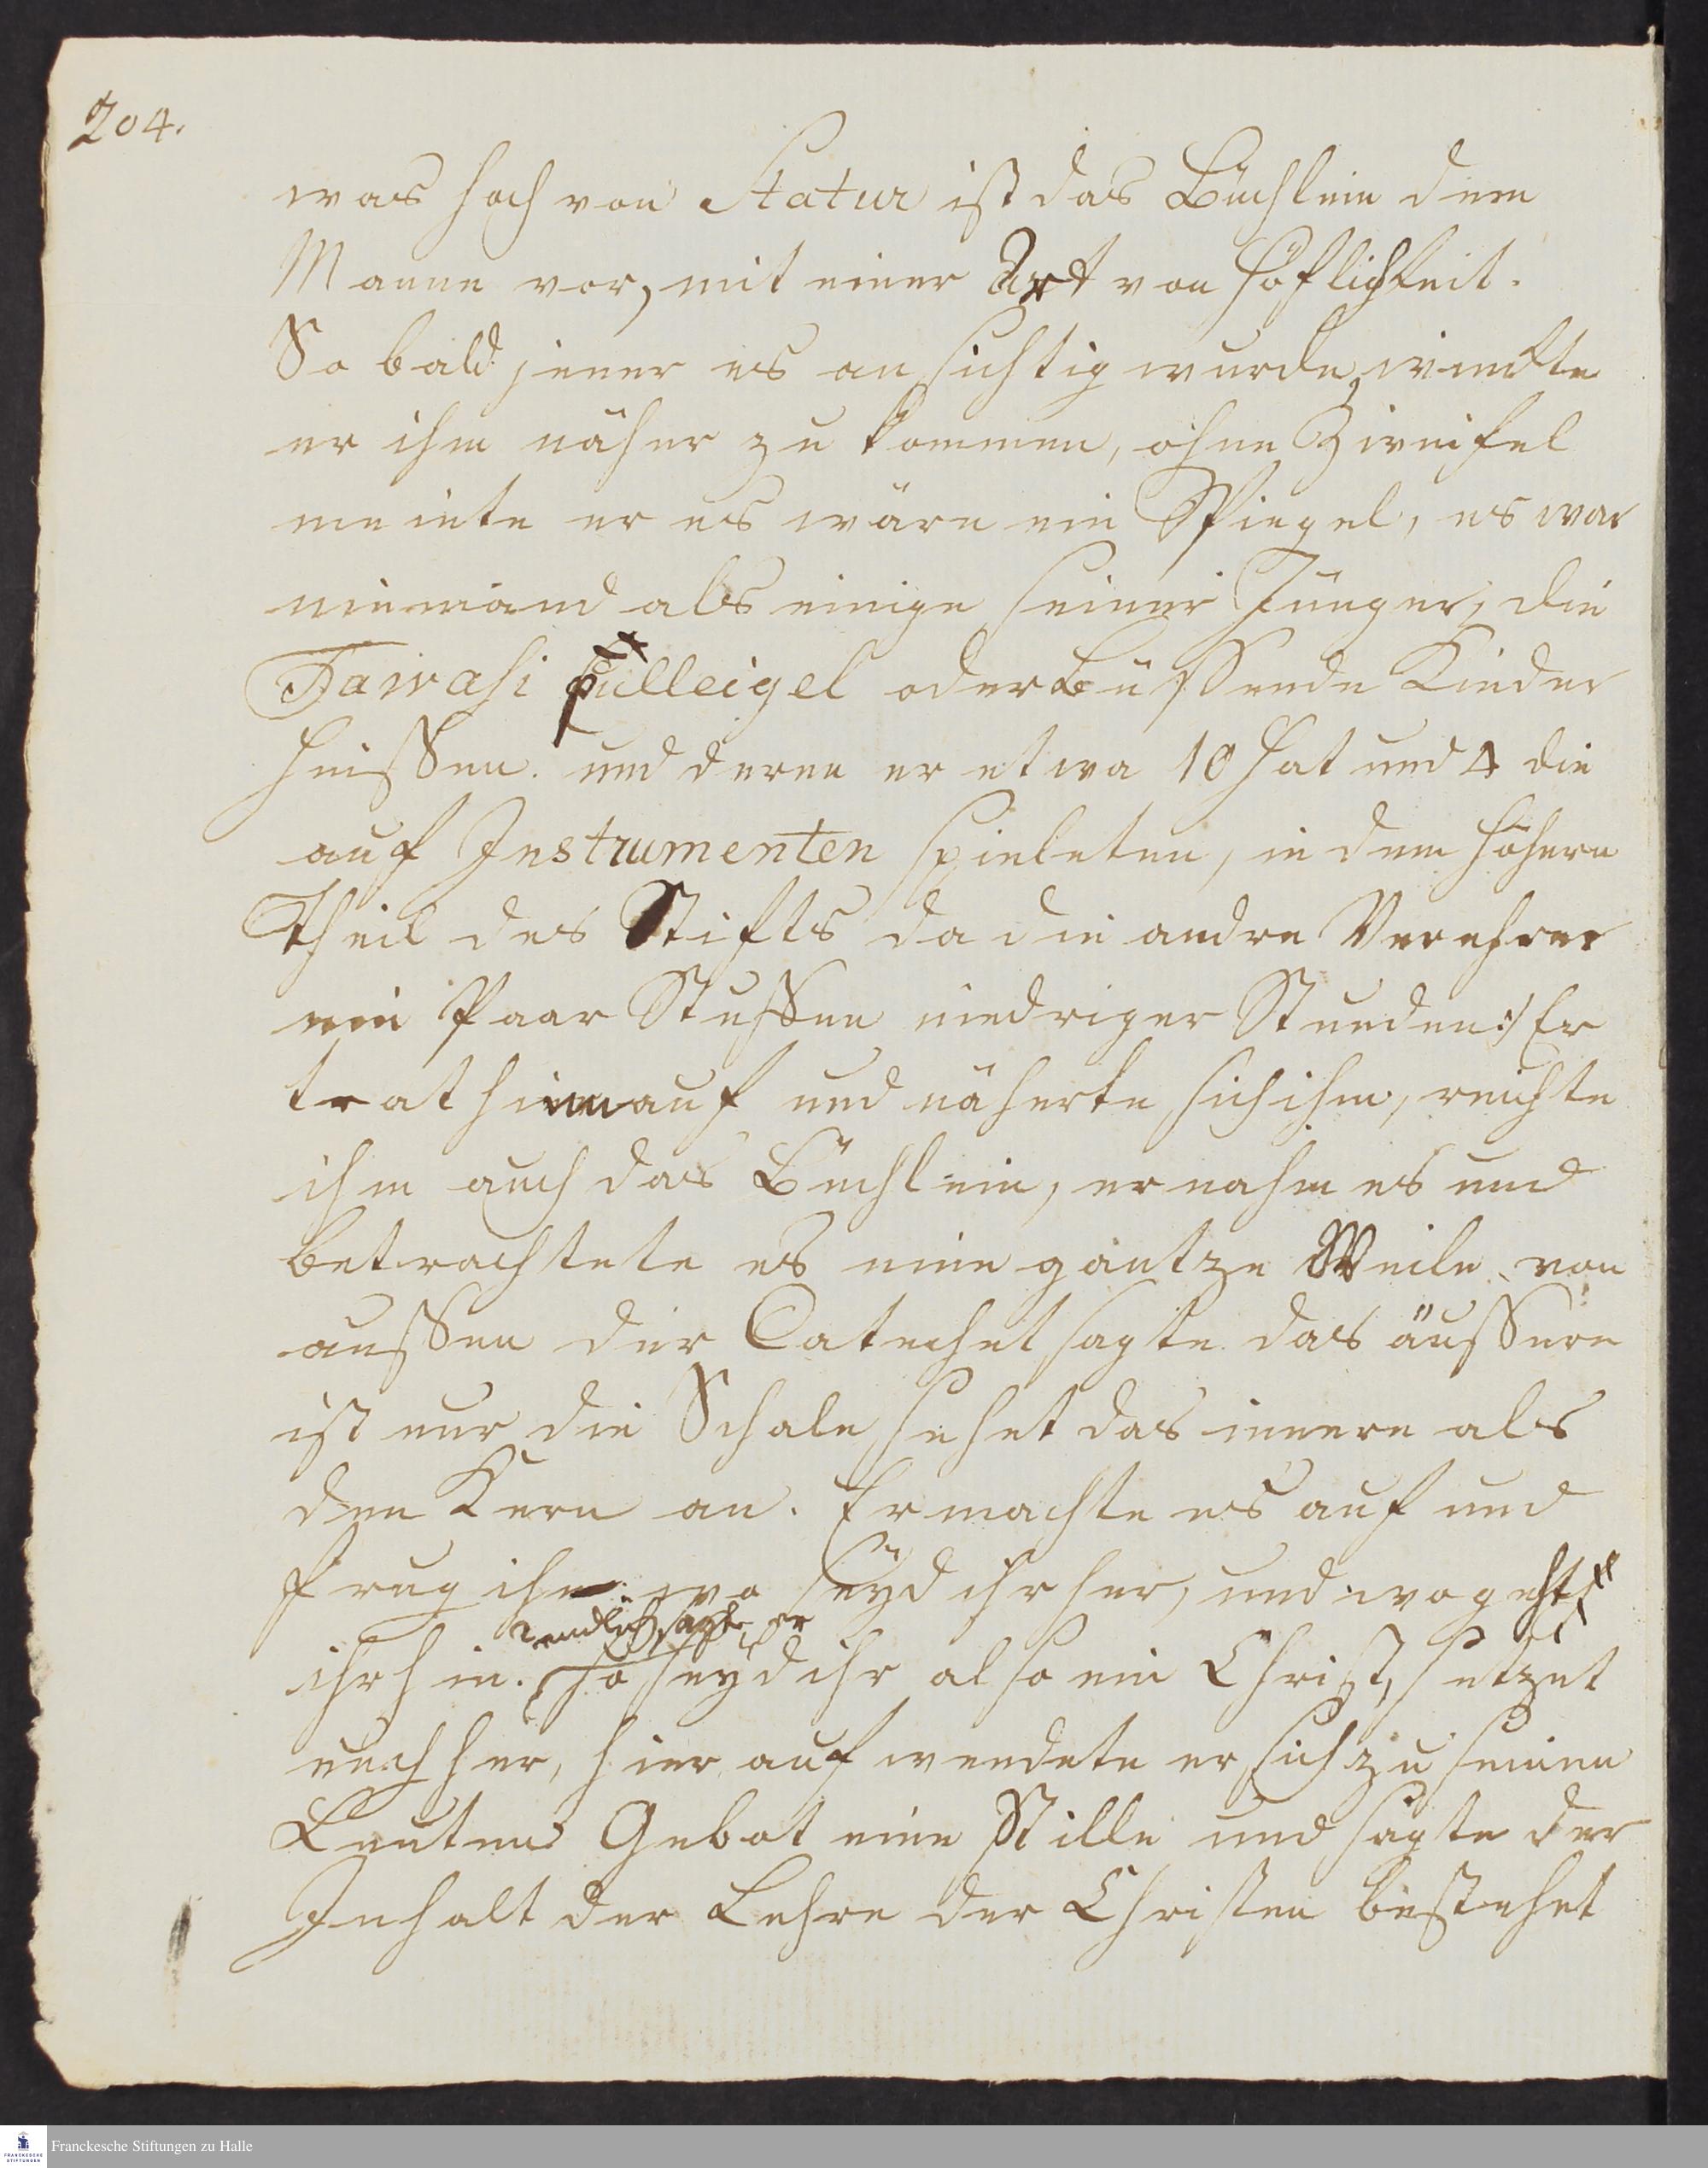 204.
was hoch von Statur ist das Büchlein dem
Manne vor, mit einer Art von Höflichkeit.
So bald jener es ansichtig wurde, winckte
er ihm näher zu kommen, ohne Zweifel
meinte er es wäre ein Spiegel, es war
niemand als einige seiner Jünger, die
Tawasi Pulleigel oder Büssende Kinder
heissen. und deren er etwa 10 hat und 4 die
auf Instrumenten spieleten, in dem höhern
Theil des Stifts da die andre Verehrer
ein Paar Stuffen niedriger Stunden:/ Er
trat hinnauf und näherte sich ihm, reichte
ihm auch das Büchlein, er nahm es und
betrachtete es eine gantze Weile von
aussen der Catechet sagte das äussere
ist nur die Schale sehet das innere als
den Kern an. Er machte es auf und
frug ihn wo seyd ihr her, und wo geht
endlich sagte er
ihr hin. so seyd ihr also ein Christ, setzet
euch her, hierauf wendete er sich zu seinen
Leuten Gebot eine Stille und sagte der
Inhalt der Lehre der Christen bestehet
Franckesche Stiftungen zu Halle